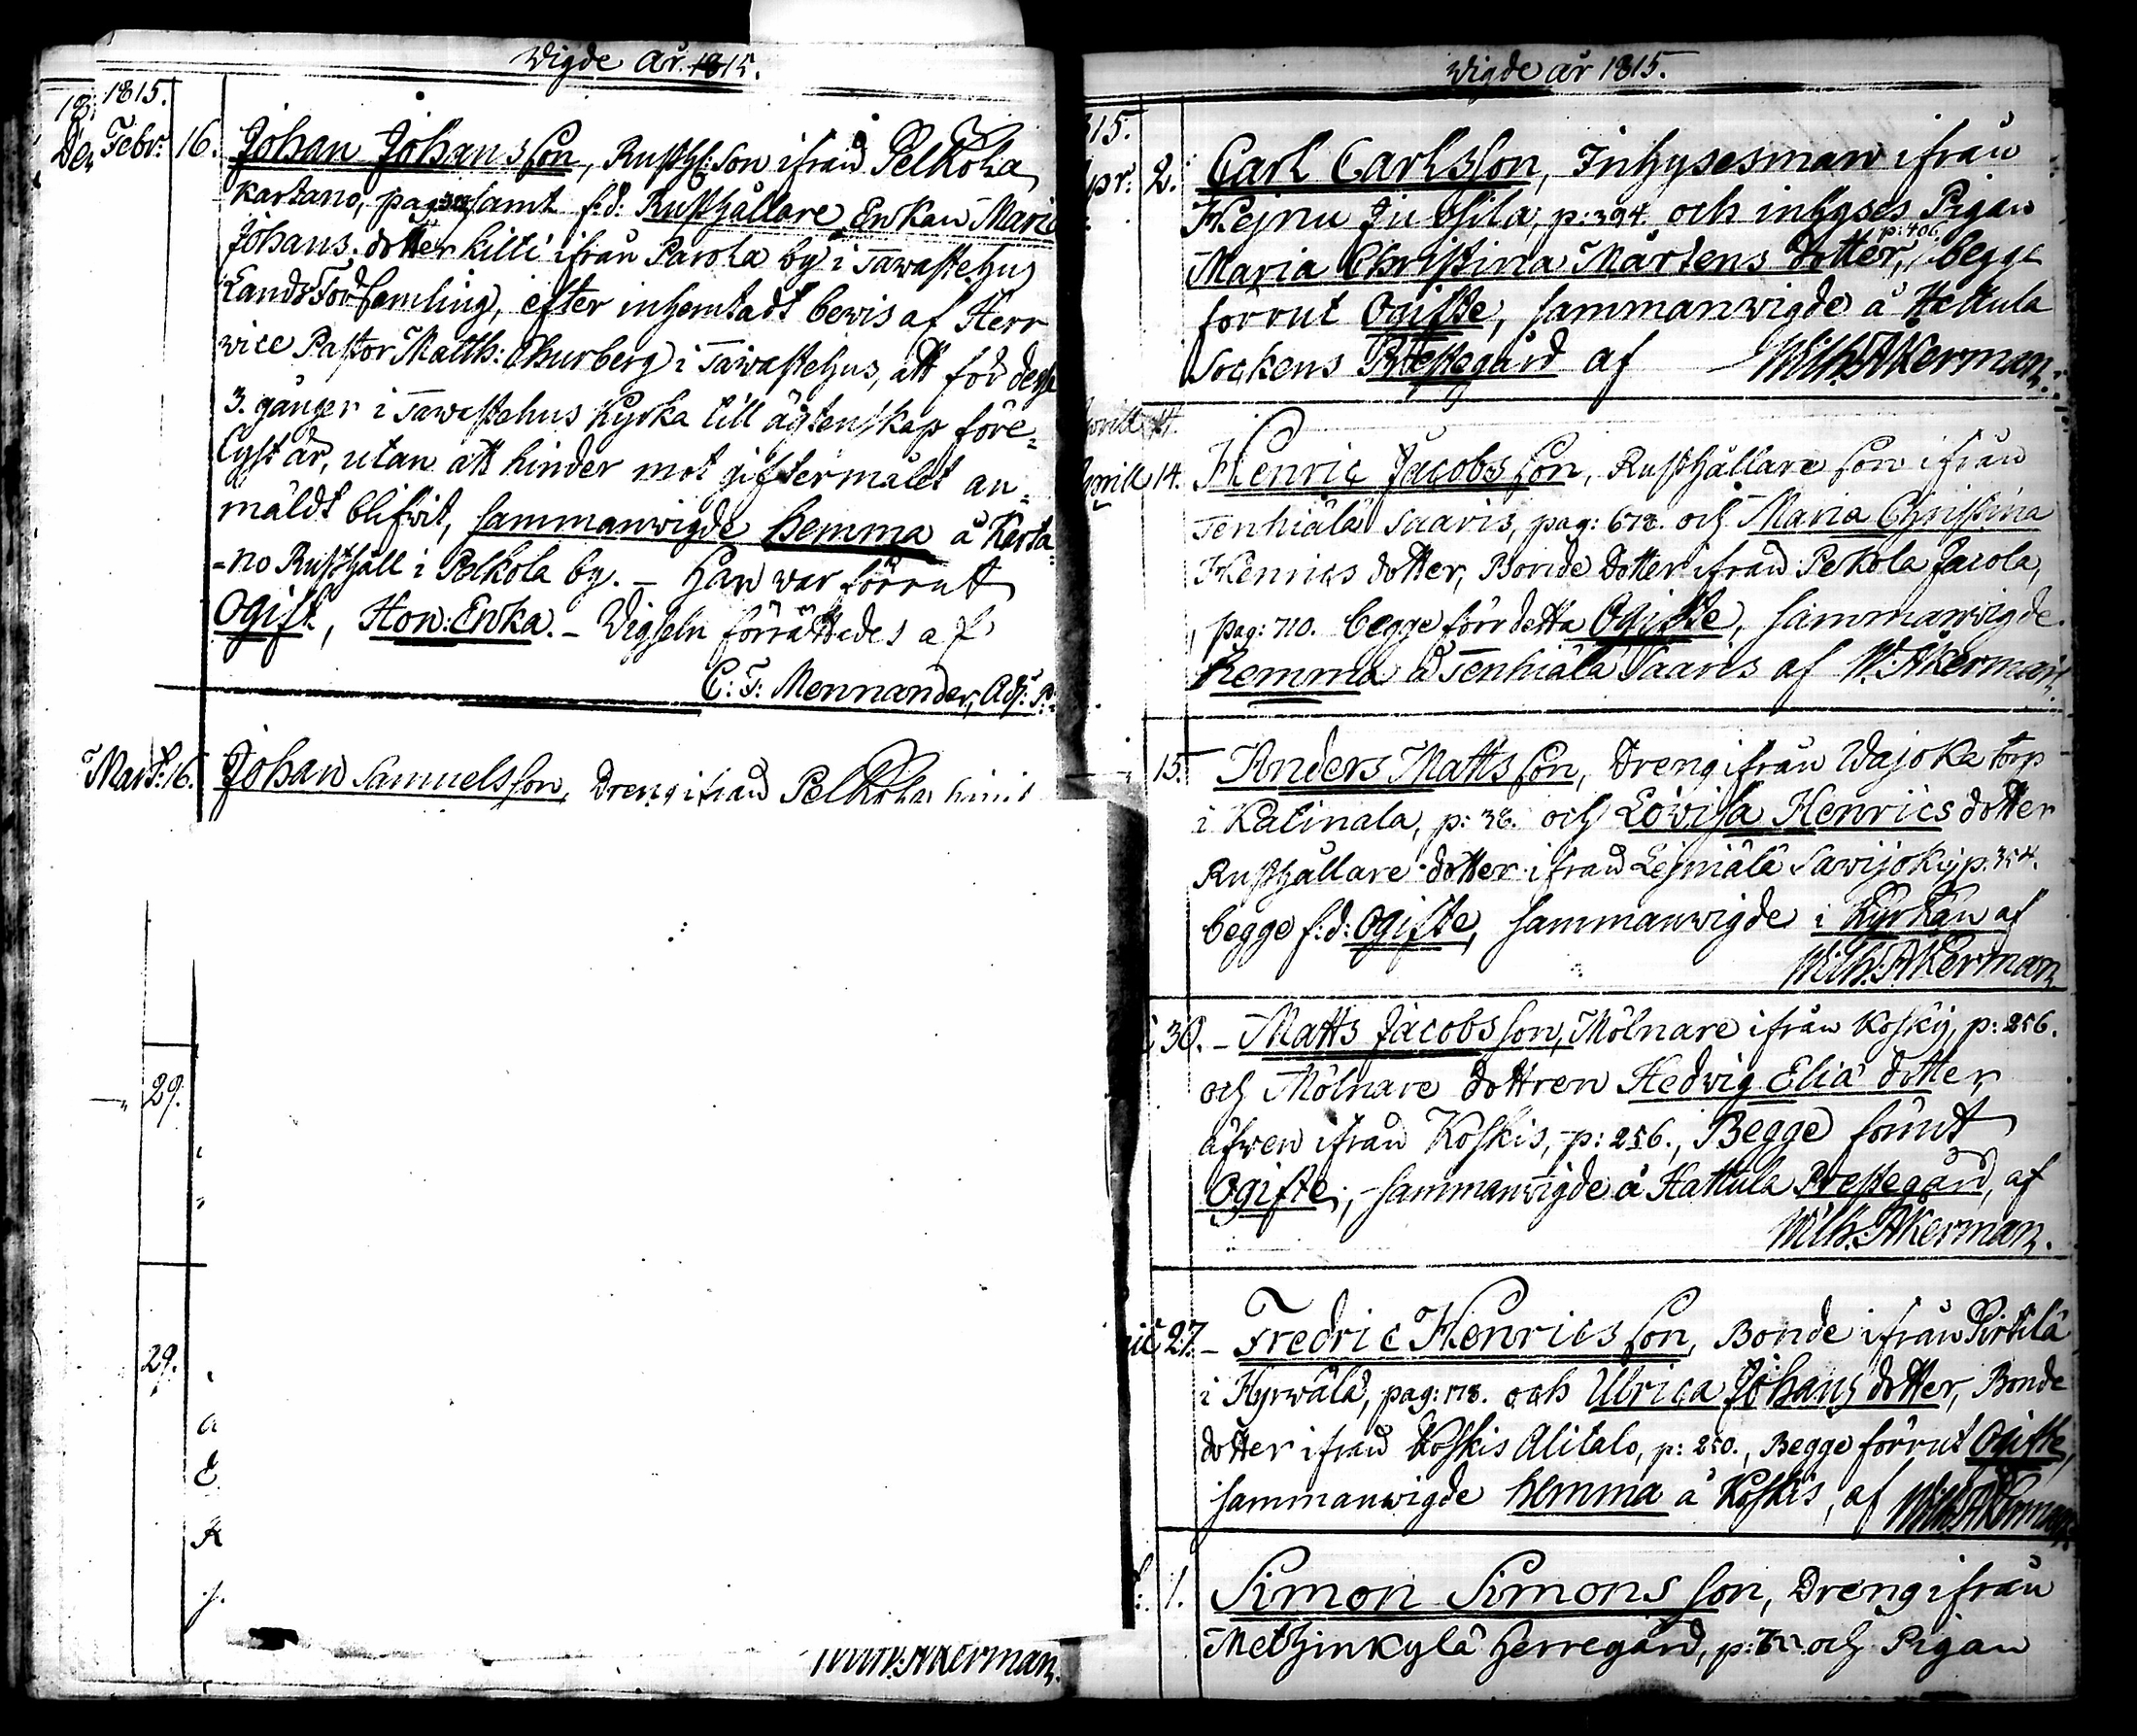 Wigde År 1815.
1815.
Febr: 16. Johan Johansson, Rusth: Son ifrån Pelkola
Kartano, pag: samt f.d. Rusthållare Enkan Maria
Johans dotter Kilti ifrån Parola by i Tawastehus
Lands Församling, efter inhemtadt bewis af Herr
vice Pastor Matth: Churberg i Tawastehus, att för dessa
3. gånger i Tawastehus Kyrka till ägtenskap före-
lyst är, utan att hinder mot giftermålet an-
mäldt blifwit, sammanwigde hemma å Karta-
-no Rusthåll i Pelkola by. – Han war förrut
Ogift, Hon: Enka. – Wigseln förrättades af
C: F: Mennander, Adj: P:
Mart: 16. Johan Samuelsson, Dreng ifrån Pelkola
29.
29.
Åkerman.
Wigde år 1815.
815.
pr: 2. Carl Carlsson, Inhysesman ifrån
Hejnu Jussila, p: 394. och inhyses Pigan
Maria Christina Mårtens dotter, p: 406. begge
förrut Ogifte, sammanwigde å Hattula
Sockens Prestegård af Wilh: Åkerman.
14.
April 14. Henric Jacobsson, Rusthållare son ifrån
Tenhiälä Saaris, pag: 678. och Maria Christina
Henrics dotter, Bonde dotter ifrån Pekola Jacola,
pag: 710. begge förrdetta Ogifte, sammanwigde
hemma å Tenhiälä Saaris af W: Åkerman.
15. Anders Mattsson, Dreng ifrån Wajoka torp
i Katinala, p: 38. och Lovisa Henrics dotter
Rusthållare dotter ifrån Lejniälä Sawijoki, p. 354.
begge f:d: Ogifte, sammanwigde i Kyrkan af
Wilh: Åkerman
30. – Matts Jacobsson, Mölnare ifrån Koskij, p: 256.
och Mölnare dottren Hedvig Elia dotter
äfwen ifrån Koskis, p: 256., Begge förrut
Ogifte, sammanwigde å Hattula Prestegård, af
Wilh: Åkerman.
27. – Fredric Henricsson, Bonde ifrån Pirttilä
i Hyrwälä, pag: 178. och Ulrica Johans dotter, Bonde
dotter ifrån Koskis Alitalo, p: 250., Begge förrut Ogifte,
sammanwigde hemma å Koskis, af Wilh: Åkerman.
1. Simon Simonsson, Dreng ifrån
Methinkylä Herregård, p: och Pigan